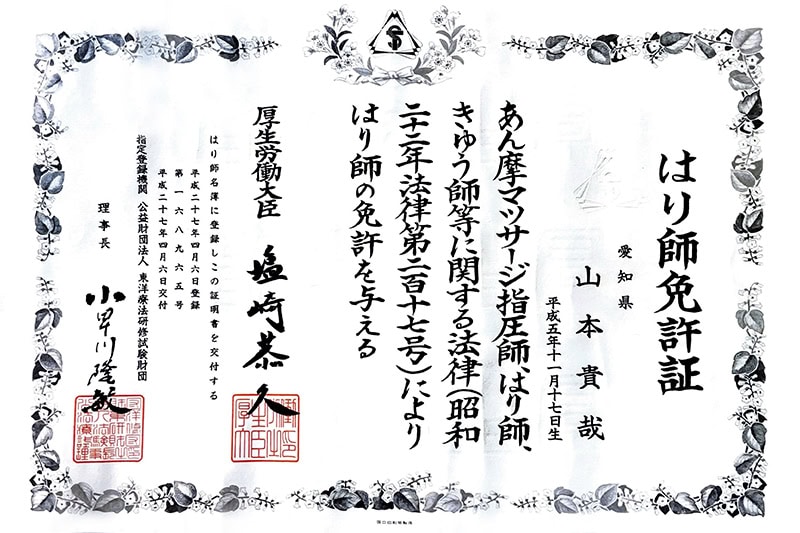 はり師免許証
愛知県
山本貴哉
平成五年十一月十七日生
あん摩マツサージ指圧師、はり師、
きゆう師等に関する法律(昭和
二十二年法律第二百十七号)により
はり師の免許を与える
厚生労働大臣 塩崎恭久
はり師名簿に登録しこの証明書を交付する
平成二十七年四月六日登録
第一六八九六五号
平成二十七年四月六日交付
指定登録機関 公益財団法人 東洋療法研修試験財団
理事長 小早川隆敏